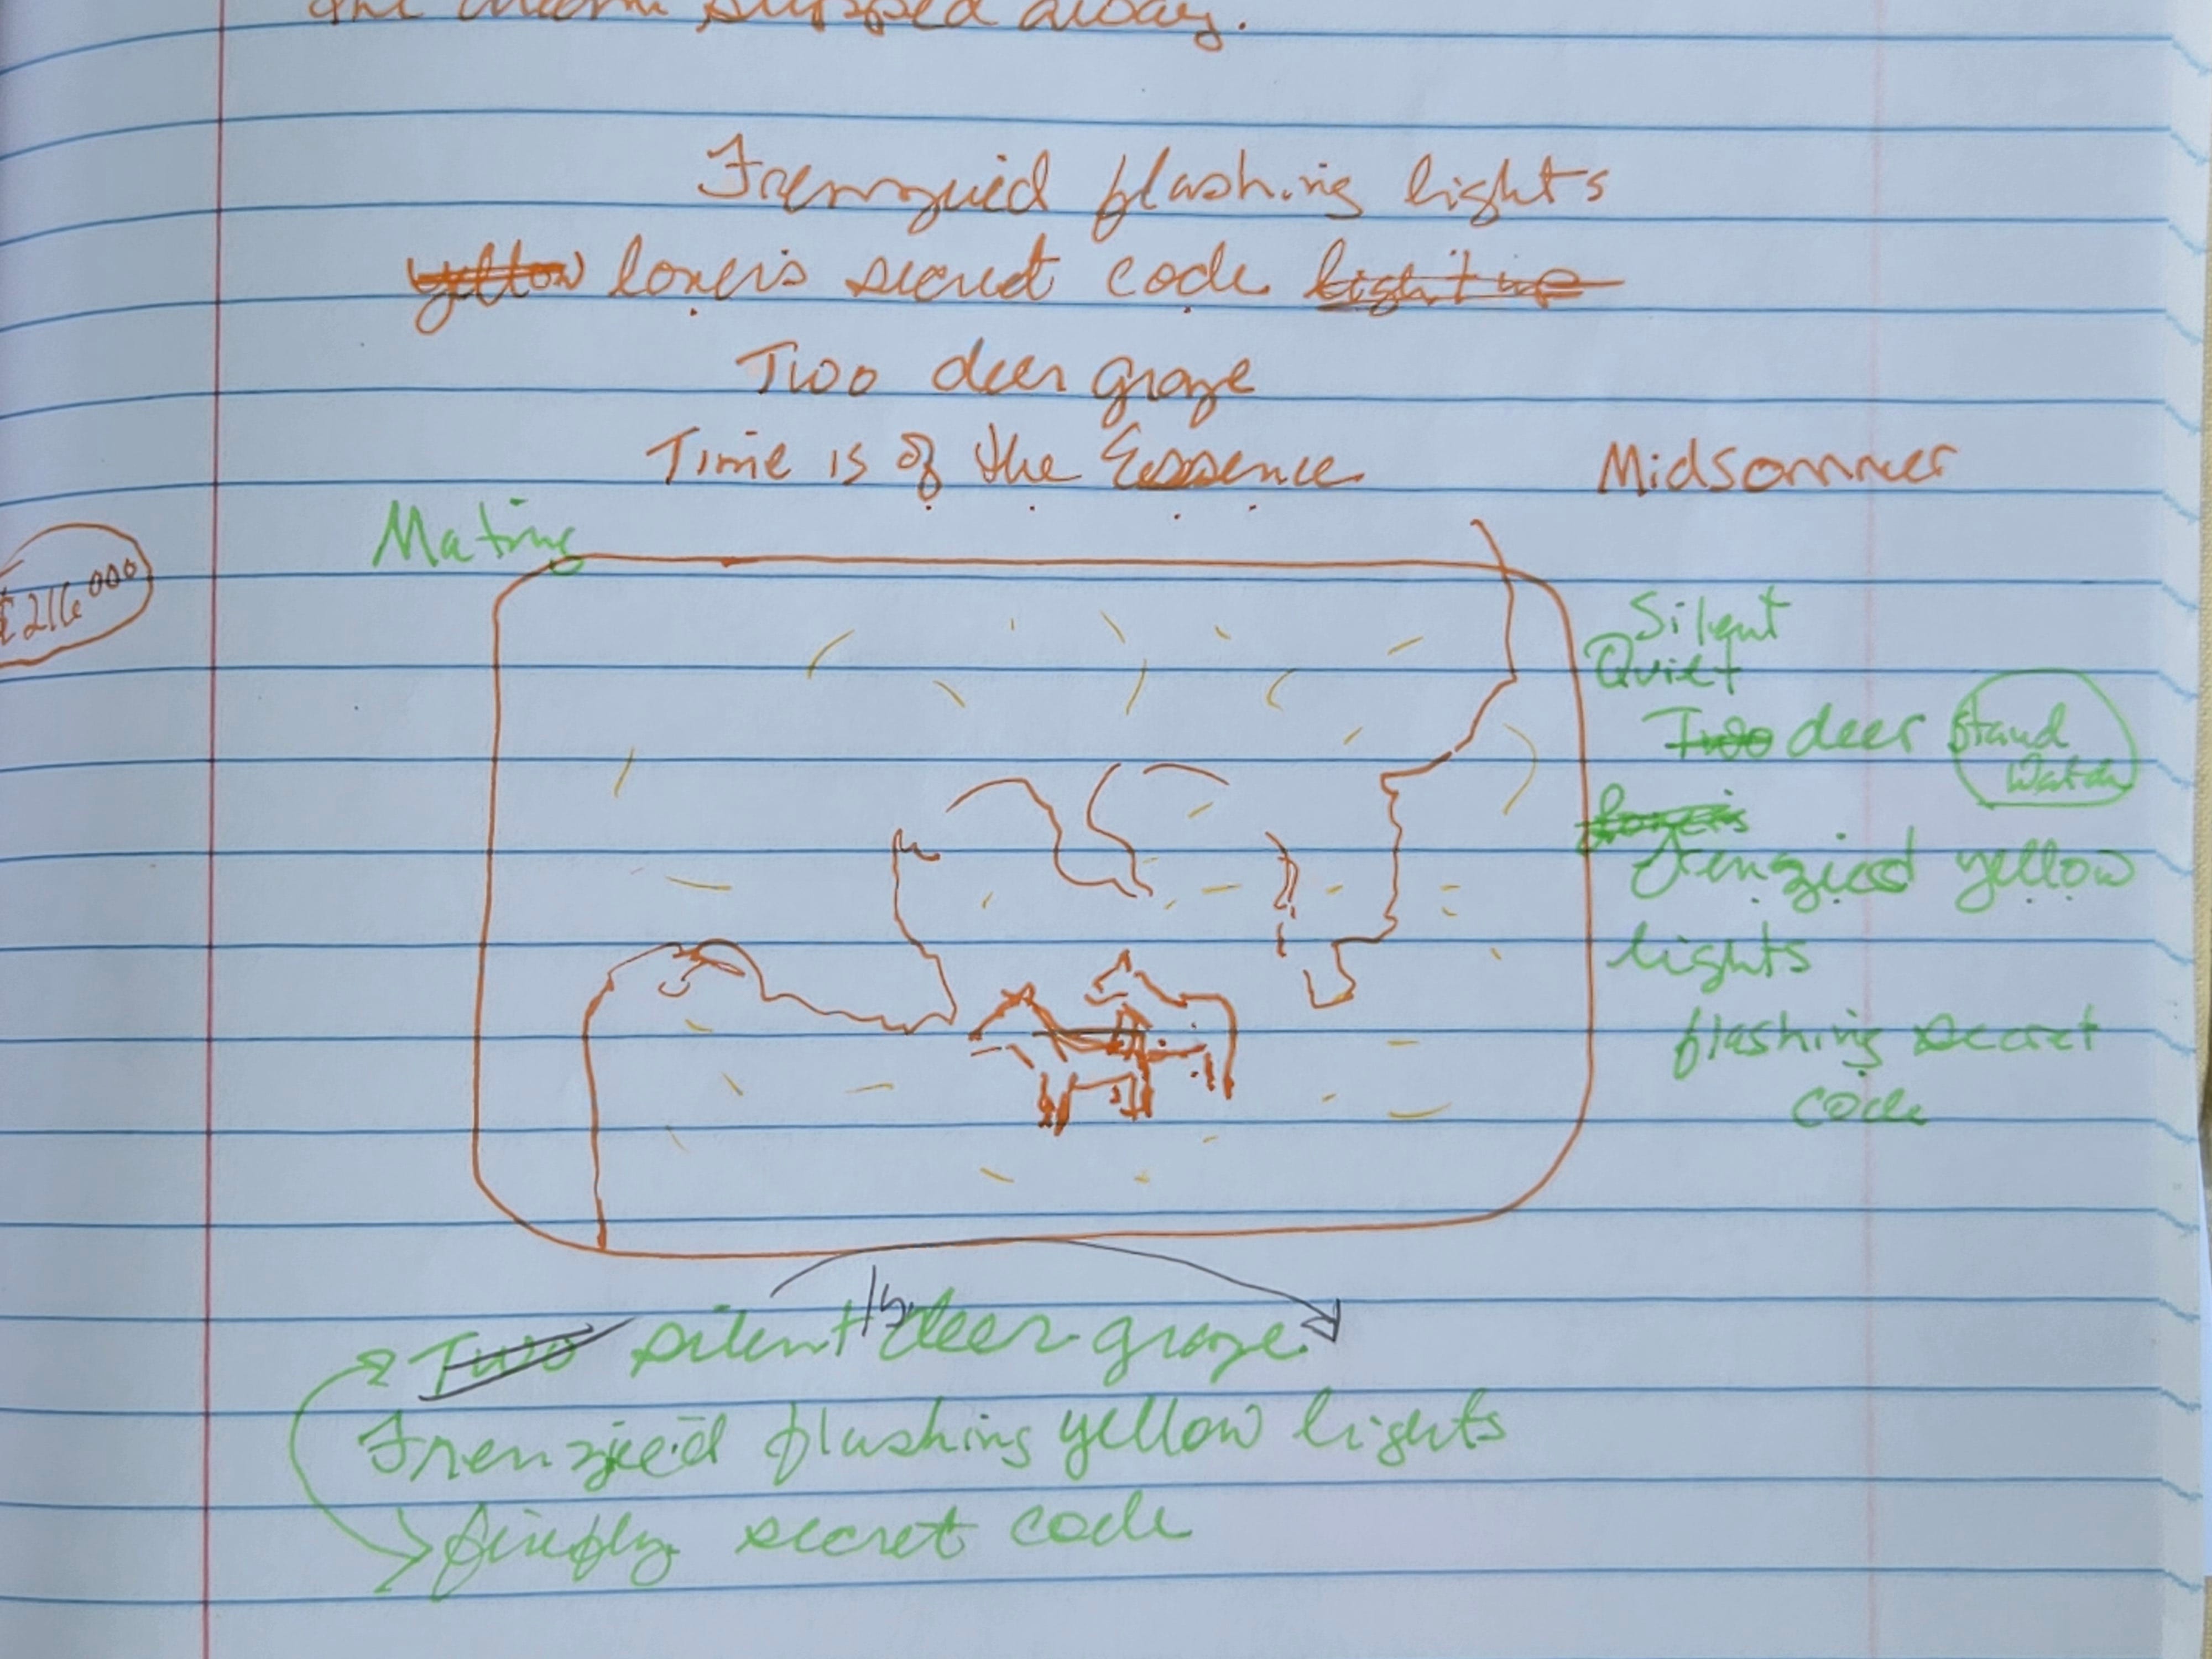 the moon slipped away.
Frenzied flashing lights
yellow lover's secret code light up
Two deer graze
Time is of the Essence
Midsommer
Mating
£216000
Silent
Quiet
Two deer stand
watch
lover's
Frenzied yellow
lights
flashing secret
code
Two silent deer graze.
Frenzied flashing yellow lights
firefly secret code